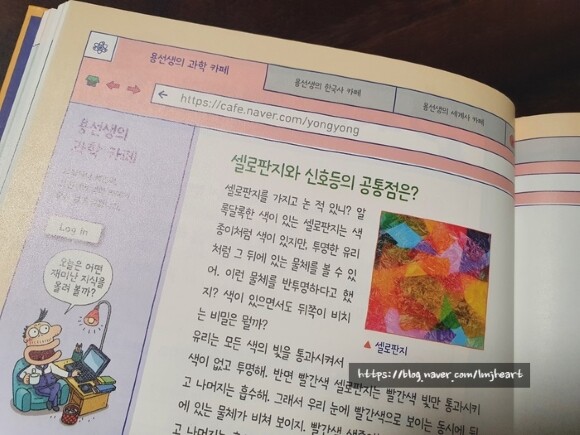 용선생의 과학 카페
용선생의 한국사 카페
용선생의 세계사 카페
https://cafe.naver.com/yongyong
용선생의
과학 카페
Log in
오늘은 어떤
재미난 지식을
올려 볼까?
셀로판지와 신호등의 공통점은?
셀로판지를 가지고 논 적 있니? 알
록달록한 색이 있는 셀로판지는 색
종이처럼 색이 있지만, 투명한 유리
처럼 그 뒤에 있는 물체를 볼 수 있
어. 이런 물체를 반투명하다고 했
지? 색이 있으면서도 뒤쪽이 비치
는 비밀은 뭘까?
▲ 셀로판지
유리는 모든 색의 빛을 통과시켜서
색이 없고 투명해. 반면 빨간색 셀로판지는 빨간색 빛만 통과시키
고 나머지는 흡수해. 그래서 우리 눈에 빨간색으로 보이는 동시에 뒤
에 있는 물체가 비쳐 보이지. 빨간색
고 나머지는
https://blog.naver.com/lmjheart